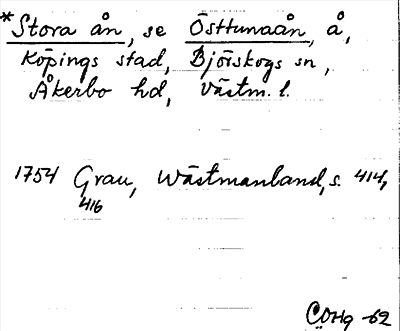 *Stora ån, se Östtunaån, å,
Köpings stad, Björskogs sn,
Åkerbo hd, Västm. l.
1754 Grau, Wästmanland, s. 414,
416
-62